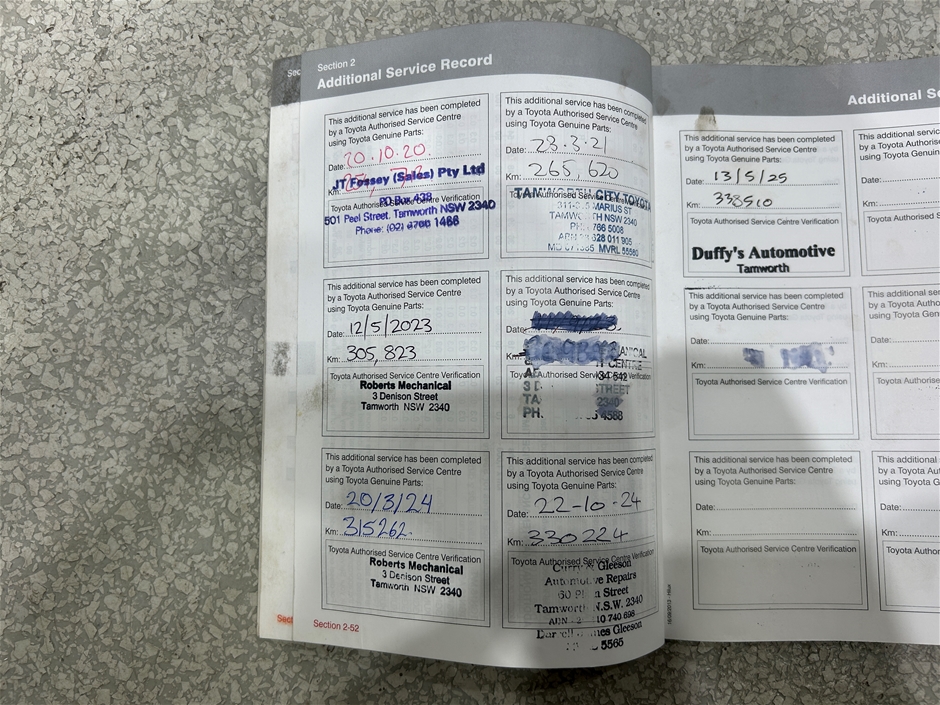 Sec
Section 2
Additional Service Record
This additional service has been completed
by a Toyota Authorised Service Centre
using Toyota Genuine Parts:
Date: 20.10.20.
Km:
JT Fossey (Sales) Pty Ltd
Toyota Authorised Service Centre Verification
PO Box 438
501 Peel Street, Tamworth NSW 2340
Phone: (02)
This additional service has been completed
by a Toyota Authorised Service Centre
using Toyota Genuine Parts:
Date: 23.3.21
Km: 265,620
Toyota Authorised Service Centre Verification
TAMWORTH CITY TOYOTA
MARIUS ST
NSW 2340
766 5008
628 011 905
MVRL 55560
This additional service has been completed
by a Toyota Authorised Service Centre
using Toyota Genuine Parts:
Date: 12/5/2023
Km: 305,823
Toyota Authorised Service Centre Verification
Roberts Mechanical
3 Denison Street
Tamworth NSW 2340
This additional service has been completed
by a Toyota Authorised Service Centre
using Toyota Genuine Parts:
Date:
Km:
CENTRE
Toyota Authorised Service Centre Verification
STREET
2340
PH.
This additional service has been completed
by a Toyota Authorised Service Centre
using Toyota Genuine Parts:
Date: 20/3/24
Km: 315262.
Toyota Authorised Service Centre Verification
Roberts Mechanical
3 Denison Street
Tamworth NSW 2340
This additional service has been completed
by a Toyota Authorised Service Centre
using Toyota Genuine Parts:
Date: 22-10-24
Km: 330224
Toyota Authorised Service Centre Verification
Gleeson
Automotive Repairs
Street
Tamworth N.S.W. 2340
740 698
Gleeson
5565
Sect
Section 2-52
Additional Se
This additional service has been completed
by a Toyota Authorised Service Centre
using Toyota Genuine Parts:
Date: 13/5/25
Km: 338510
Toyota Authorised Service Centre Verification
Duffy's Automotive
Tamworth
This additional servic
by a Toyota Authorise
using Toyota Genuine
Date:
Km:
Toyota Authorised Serv
This additional service has been completed
by a Toyota Authorised Service Centre
using Toyota Genuine Parts:
Date:
Km:
Toyota Authorised Service Centre Verification
This additional se
by a Toyota Author
using Toyota Gen
Date:
Km:
Toyota Authorised
This additional service has been completed
by a Toyota Authorised Service Centre
using Toyota Genuine Parts:
Date:
Km:
Toyota Authorised Service Centre Verification
This additional
by a Toyota Aut
using Toyota G
Date:
Km:
Toyota Authoris